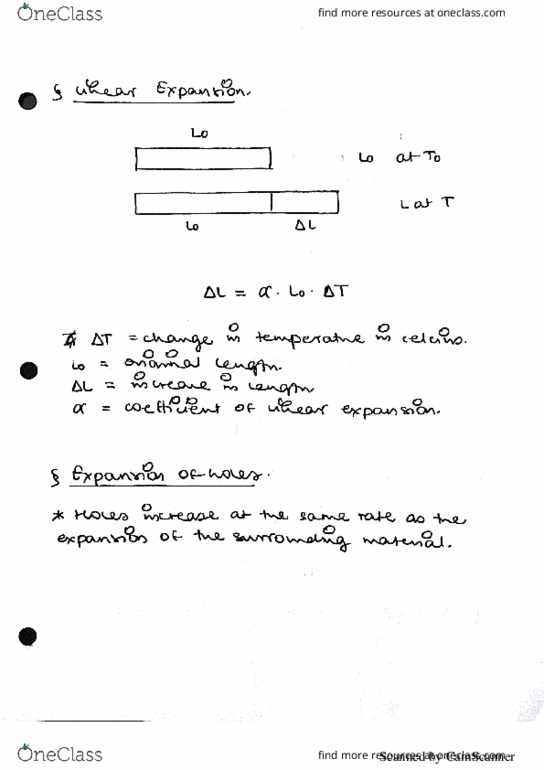 OneClass
find more resources at oneclass.com
§ Linear Expansion.
Lo
Lo at To
L at T
Lo ΔL
ΔL = α · Lo · ΔT
ΔT = change in temperature in celcius.
Lo = original length.
ΔL = increase in length
α = coefficient of linear expansion.
§ Expansion of holes.
* Holes increase at the same rate as the
expansion of the surrounding material.
OneClass
find more resources at oneclass.com
Scanned by CamScanner